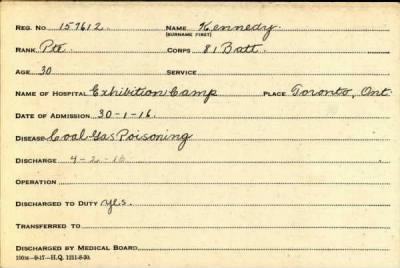 REG. NO 157612. NAME Kennedy.
(SURNAME FIRST)
RANK Pte. CORPS 81 Batt.
AGE 30 SERVICE
NAME OF HOSPITAL Exhibition Camp PLACE Toronto, Ont.
DATE OF ADMISSION 30-1-16.
DISEASE Coal Gas Poisoning
DISCHARGE 4-2-16
OPERATION
DISCHARGED TO DUTY yes.
TRANSFERRED TO
DISCHARGED BY MEDICAL BOARD